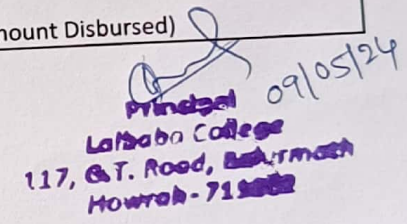 mount Disbursed)
09/05/24
Principal
Lalbaba College
117, G.T. Road,
Howrah-